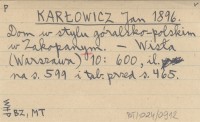 P
KARŁOWICZ Jan 1896.
Dom w stylu góralsko-polskim
w Zakopanym. — Wisła
(Warszawa) 10: 600, il.
na s. 599 i tabl. przed s. 465.
BZ, MT